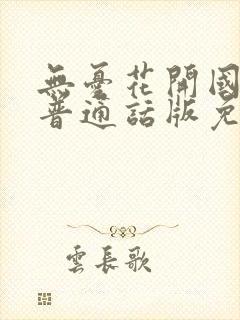 無憂花開國
普通話版免
雲長歌